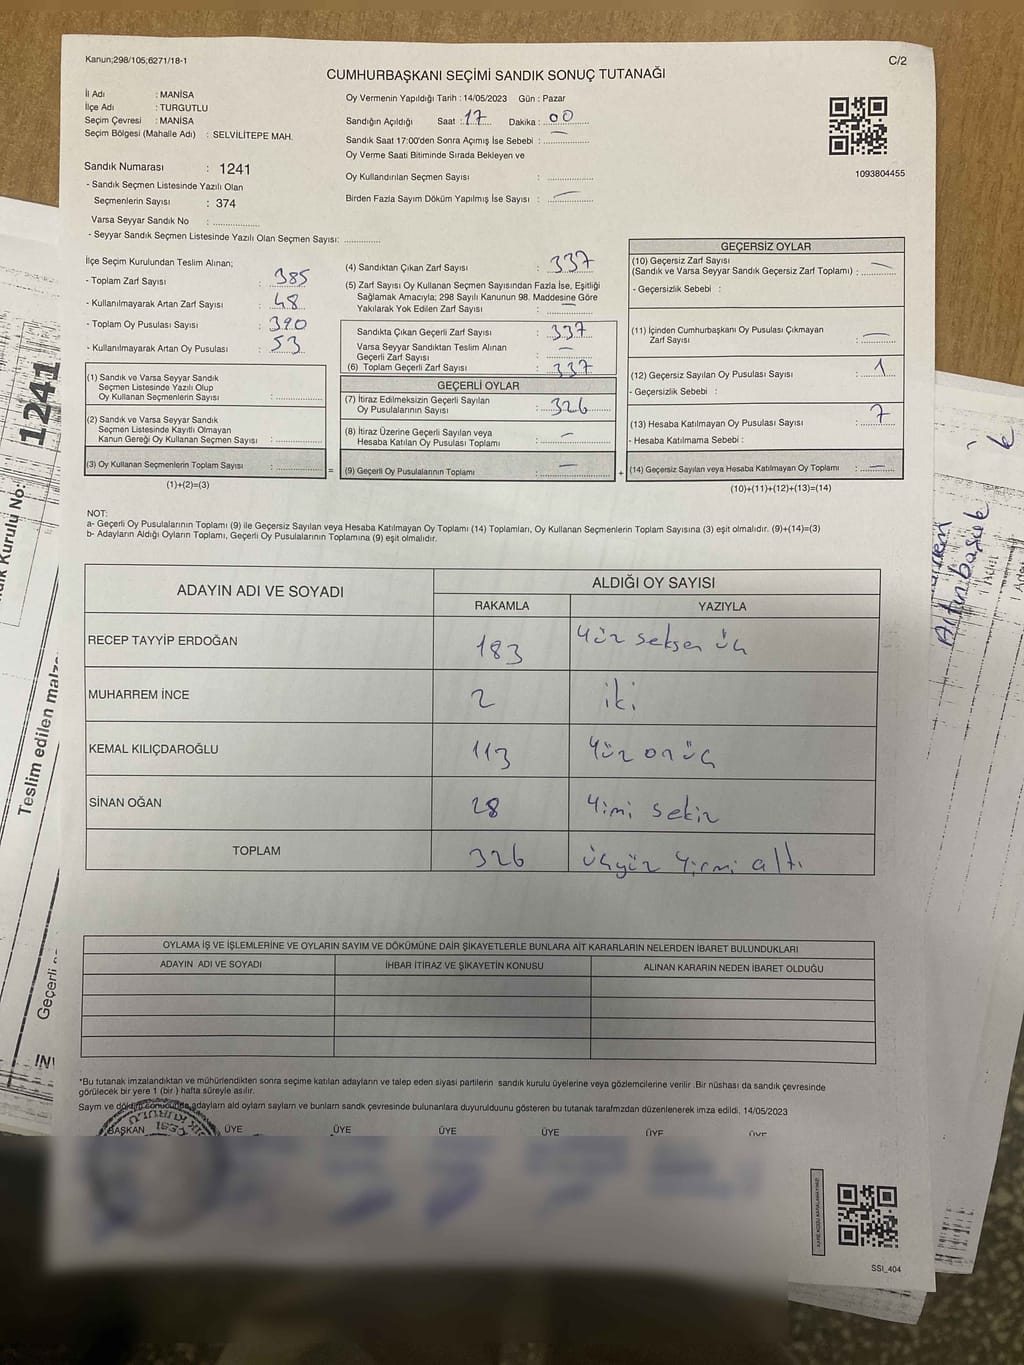 Kanun;298/105;6271/18-1
C/2
CUMHURBAŞKANI SEÇİMİ SANDIK SONUÇ TUTANAĞI
İl Adı : MANİSA
İlçe Adı : TURGUTLU
Seçim Çevresi : MANİSA
Seçim Bölgesi (Mahalle Adı) : SELVİLİTEPE MAH.
Sandık Numarası : 1241
- Sandık Seçmen Listesinde Yazılı Olan
Seçmenlerin Sayısı : 374
Varsa Seyyar Sandık No : ..............
- Seyyar Sandık Seçmen Listesinde Yazılı Olan Seçmen Sayısı: ............
Oy Vermenin Yapıldığı Tarih : 14/05/2023 Gün : Pazar
Sandığın Açıldığı Saat : 17 Dakika : 00
Sandık Saat 17:00'den Sonra Açımış İse Sebebi : —
Oy Verme Saati Bitiminde Sırada Bekleyen ve
Oy Kullandırılan Seçmen Sayısı : ..............
Birden Fazla Sayım Döküm Yapılmış İse Sayısı : —
1093804455
İlçe Seçim Kurulundan Teslim Alınan;
- Toplam Zarf Sayısı : 385
- Kullanılmayarak Artan Zarf Sayısı : 48
- Toplam Oy Pusulası Sayısı : 390
- Kullanılmayarak Artan Oy Pusulası : 53
(1) Sandık ve Varsa Seyyar Sandık
Seçmen Listesinde Yazılı Olup
Oy Kullanan Seçmenlerin Sayısı : ..............
(2) Sandık ve Varsa Seyyar Sandık
Seçmen Listesinde Kayıtlı Olmayan
Kanun Gereği Oy Kullanan Seçmen Sayısı : ..............
(3) Oy Kullanan Seçmenlerin Toplam Sayısı : ..............
(1)+(2)=(3)
=
(4) Sandıktan Çıkan Zarf Sayısı : 337
(5) Zarf Sayısı Oy Kullanan Seçmen Sayısından Fazla İse, Eşitliği
Sağlamak Amacıyla; 298 Sayılı Kanunun 98. Maddesine Göre
Yakılarak Yok Edilen Zarf Sayısı : —
Sandıkta Çıkan Geçerli Zarf Sayısı : 337
Varsa Seyyar Sandıktan Teslim Alınan
Geçerli Zarf Sayısı : —
(6) Toplam Geçerli Zarf Sayısı : 337
GEÇERLİ OYLAR
(7) İtiraz Edilmeksizin Geçerli Sayılan
Oy Pusulalarının Sayısı : 326
(8) İtiraz Üzerine Geçerli Sayılan veya
Hesaba Katılan Oy Pusulası Toplamı : —
(9) Geçerli Oy Pusulalarının Toplamı : —
+
GEÇERSİZ OYLAR
(10) Geçersiz Zarf Sayısı
(Sandık ve Varsa Seyyar Sandık Geçersiz Zarf Toplamı) : —
- Geçersizlik Sebebi :
(11) İçinden Cumhurbaşkanı Oy Pusulası Çıkmayan
Zarf Sayısı : —
(12) Geçersiz Sayılan Oy Pusulası Sayısı : 1
- Geçersizlik Sebebi :
(13) Hesaba Katılmayan Oy Pusulası Sayısı : 7
- Hesaba Katılmama Sebebi :
(14) Geçersiz Sayılan veya Hesaba Katılmayan Oy Toplamı : —
(10)+(11)+(12)+(13)=(14)
NOT:
a- Geçerli Oy Pusulalarının Toplamı (9) ile Geçersiz Sayılan veya Hesaba Katılmayan Oy Toplamı (14) Toplamları, Oy Kullanan Seçmenlerin Toplam Sayısına (3) eşit olmalıdır. (9)+(14)=(3)
b- Adayların Aldığı Oyların Toplamı, Geçerli Oy Pusulalarının Toplamına (9) eşit olmalıdır.
ADAYIN ADI VE SOYADI ALDIĞI OY SAYISI
RAKAMLA YAZIYLA
RECEP TAYYİP ERDOĞAN 183 Yüz seksen üç
MUHARREM İNCE 2 iki
KEMAL KILIÇDAROĞLU 113 Yüz on üç
SİNAN OĞAN 28 Yimi sekiz
TOPLAM 326 üçyüz Yirmi altı
OYLAMA İŞ VE İŞLEMLERİNE VE OYLARIN SAYIM VE DÖKÜMÜNE DAİR ŞİKAYETLERLE BUNLARA AİT KARARLARIN NELERDEN İBARET BULUNDUKLARI
ADAYIN ADI VE SOYADI İHBAR İTİRAZ VE ŞİKAYETİN KONUSU ALINAN KARARIN NEDEN İBARET OLDUĞU
*Bu tutanak imzalandıktan ve mühürlendikten sonra seçime katılan adayların ve talep eden siyasi partilerin sandık kurulu üyelerine veya gözlemcilerine verilir .Bir nüshası da sandık çevresinde
görülecek bir yere 1 (bir ) hafta süreyle asılır.
Sayım ve döküm sonucunda adayların ald oyların sayları ve bunların sandk çevresinde bulunanlara duyurulduunu gösteren bu tutanak tarafmzdan düzenlenerek imza edildi. 14/05/2023
BAŞKAN ÜYE ÜYE ÜYE ÜYE ÜYE ÜYE
SSİ_404
1241
Kurulu No:
Teslim edilen malze
Geçerli
Altınbaşak